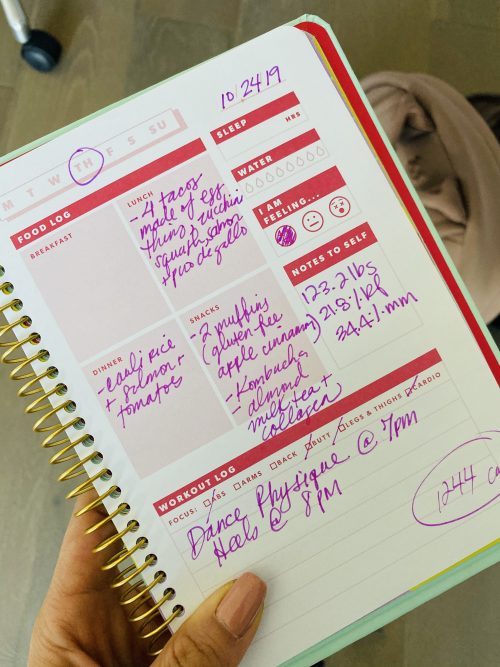 10/24/19
M T W TH F S SU
SLEEP
HRS
WATER
I AM
FEELING...
FOOD LOG
BREAKFAST
LUNCH
- 4 tacos
made of egg
thins, zucchini
squash, salmon
+ pico de gallo
NOTES TO SELF
123.2 lbs
21.8% bf
34.4% mm
DINNER
- cauli rice
+ salmon +
tomatos
SNACKS
- 2 muffins
(gluten-free
apple cinnamon)
- Kombucha
- almond
milk tea +
collagen
WORKOUT LOG
FOCUS: ABS ARMS BACK BUTT LEGS & THIGHS CARDIO
Dance Physique @ 7pm
Heels @ 8PM
1244